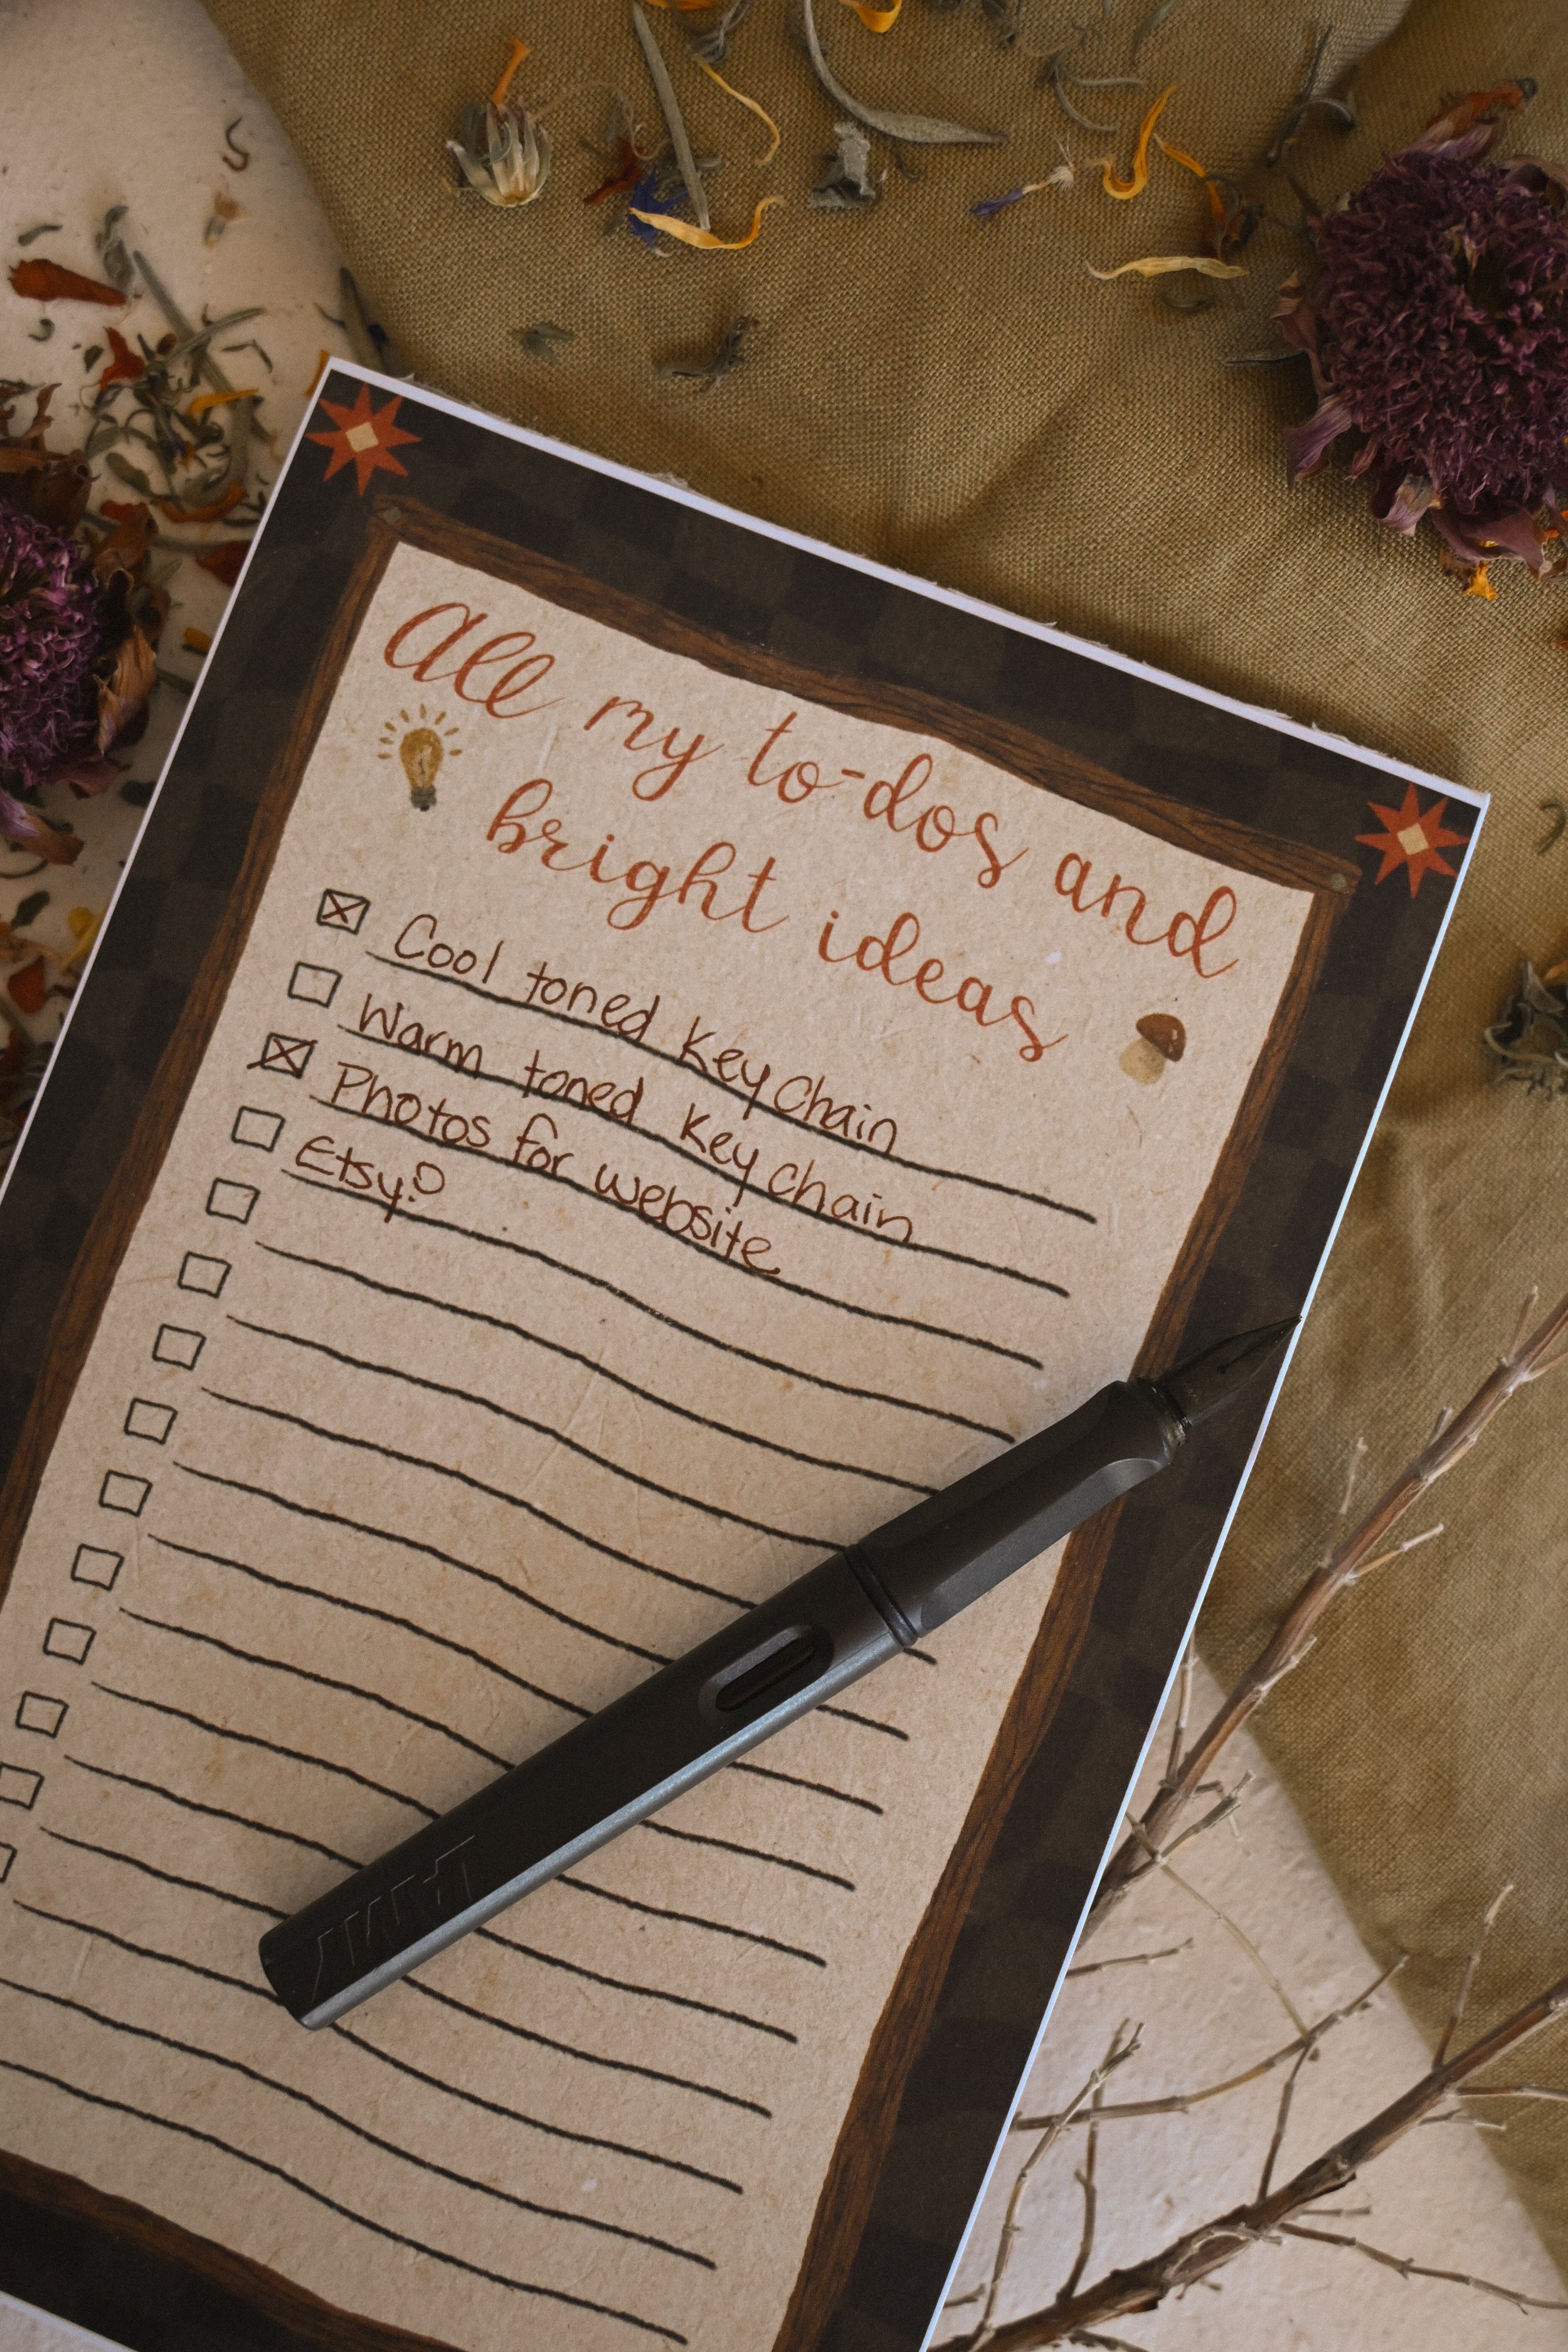 All my to-dos and
bright ideas
Cool toned Key Chain
Warm toned Key Chain
Photos for website
Etsy?
LAMY